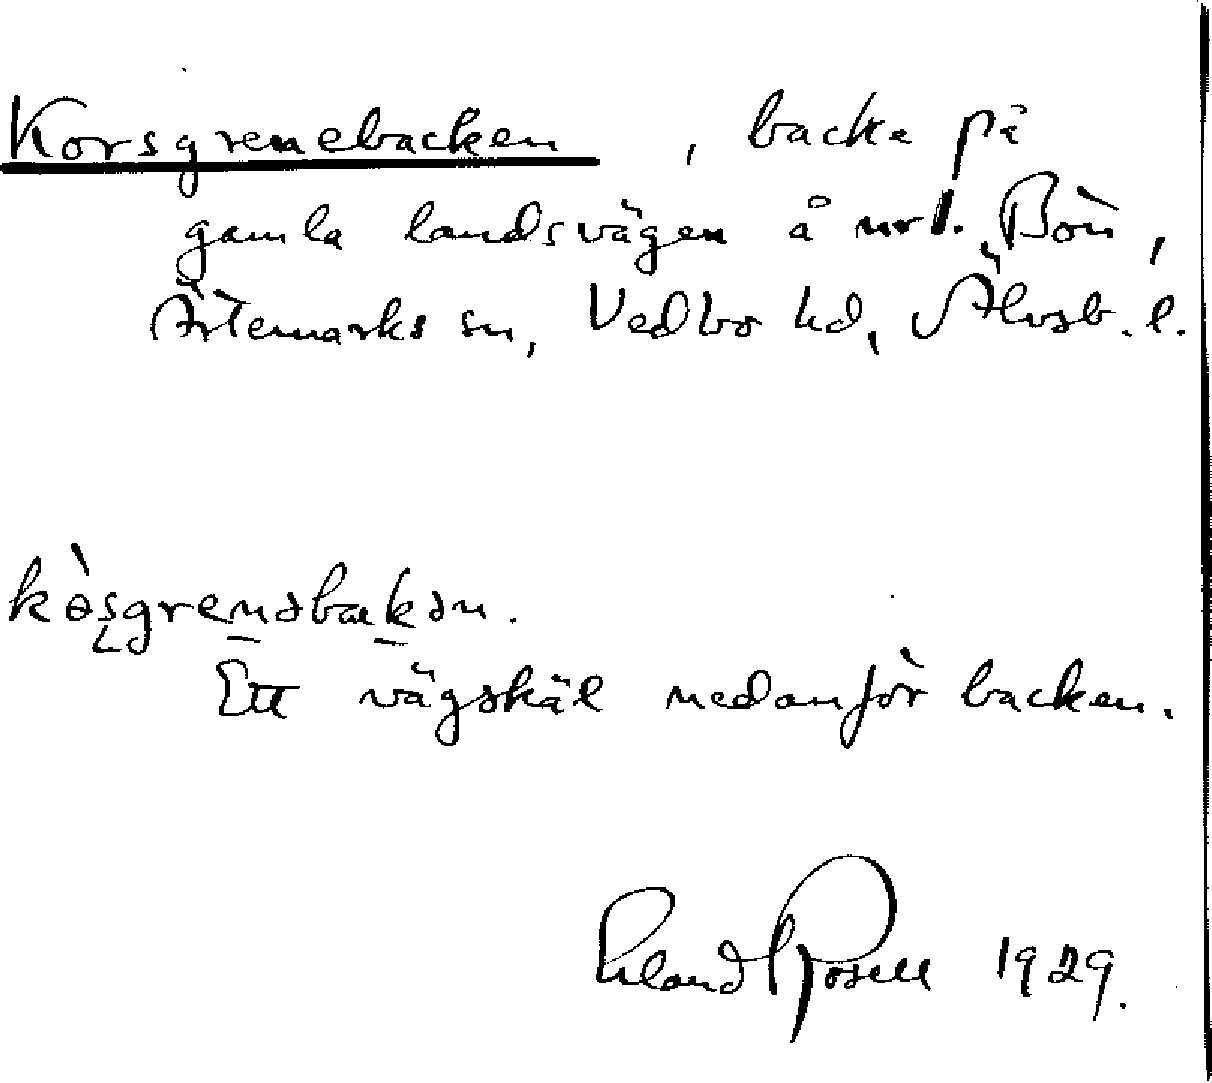 Korsgrenebacken , backe på
gamla landsvägen å nrd. Bön,
Ärtemarks sn, Vedbo hd, Älvsb. l.
kòsgrenəbakən.
Ett vägskäl nedanför backen.
Erland Rosell 1929.